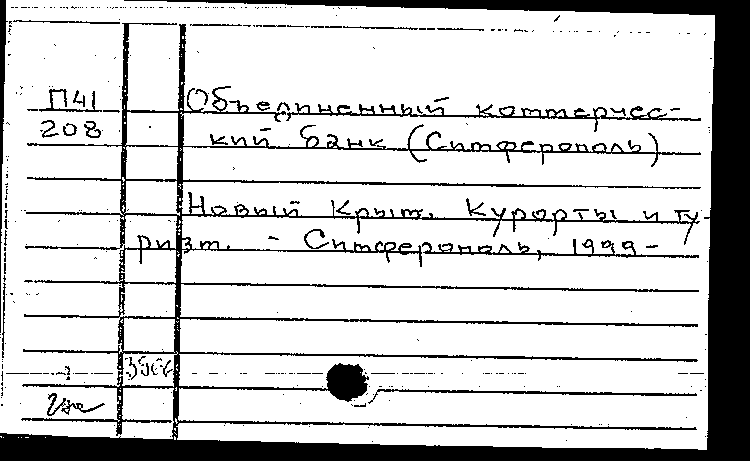 П41 Объединенный коммерчес-
208 кий банк (Симферополь)
Новый Крым. Курорты и ту-
ризм. - Симферополь, 1999-